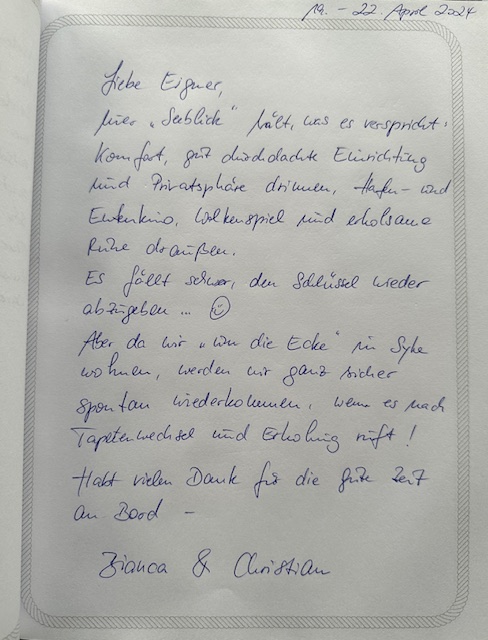 19. - 22. April 2024
Liebe Eigner,
Euer „Seeblick" hält, was es verspricht:
Komfort, gut durchdachte Einrichtung
und Privatsphäre drinnen, Hafen- und
Entenkino, Wolkenspiel und erholsame
Ruhe draußen.
Es fällt schwer, den Schlüssel wieder
abzugeben ... ☺
Aber da wir „um die Ecke" in Syke
wohnen, werden wir ganz sicher
spontan wiederkommen, wenn es nach
Tapetenwechsel und Erholung ruft!
Habt vielen Dank für die gute Zeit
an Bord –
Bianca & Christian